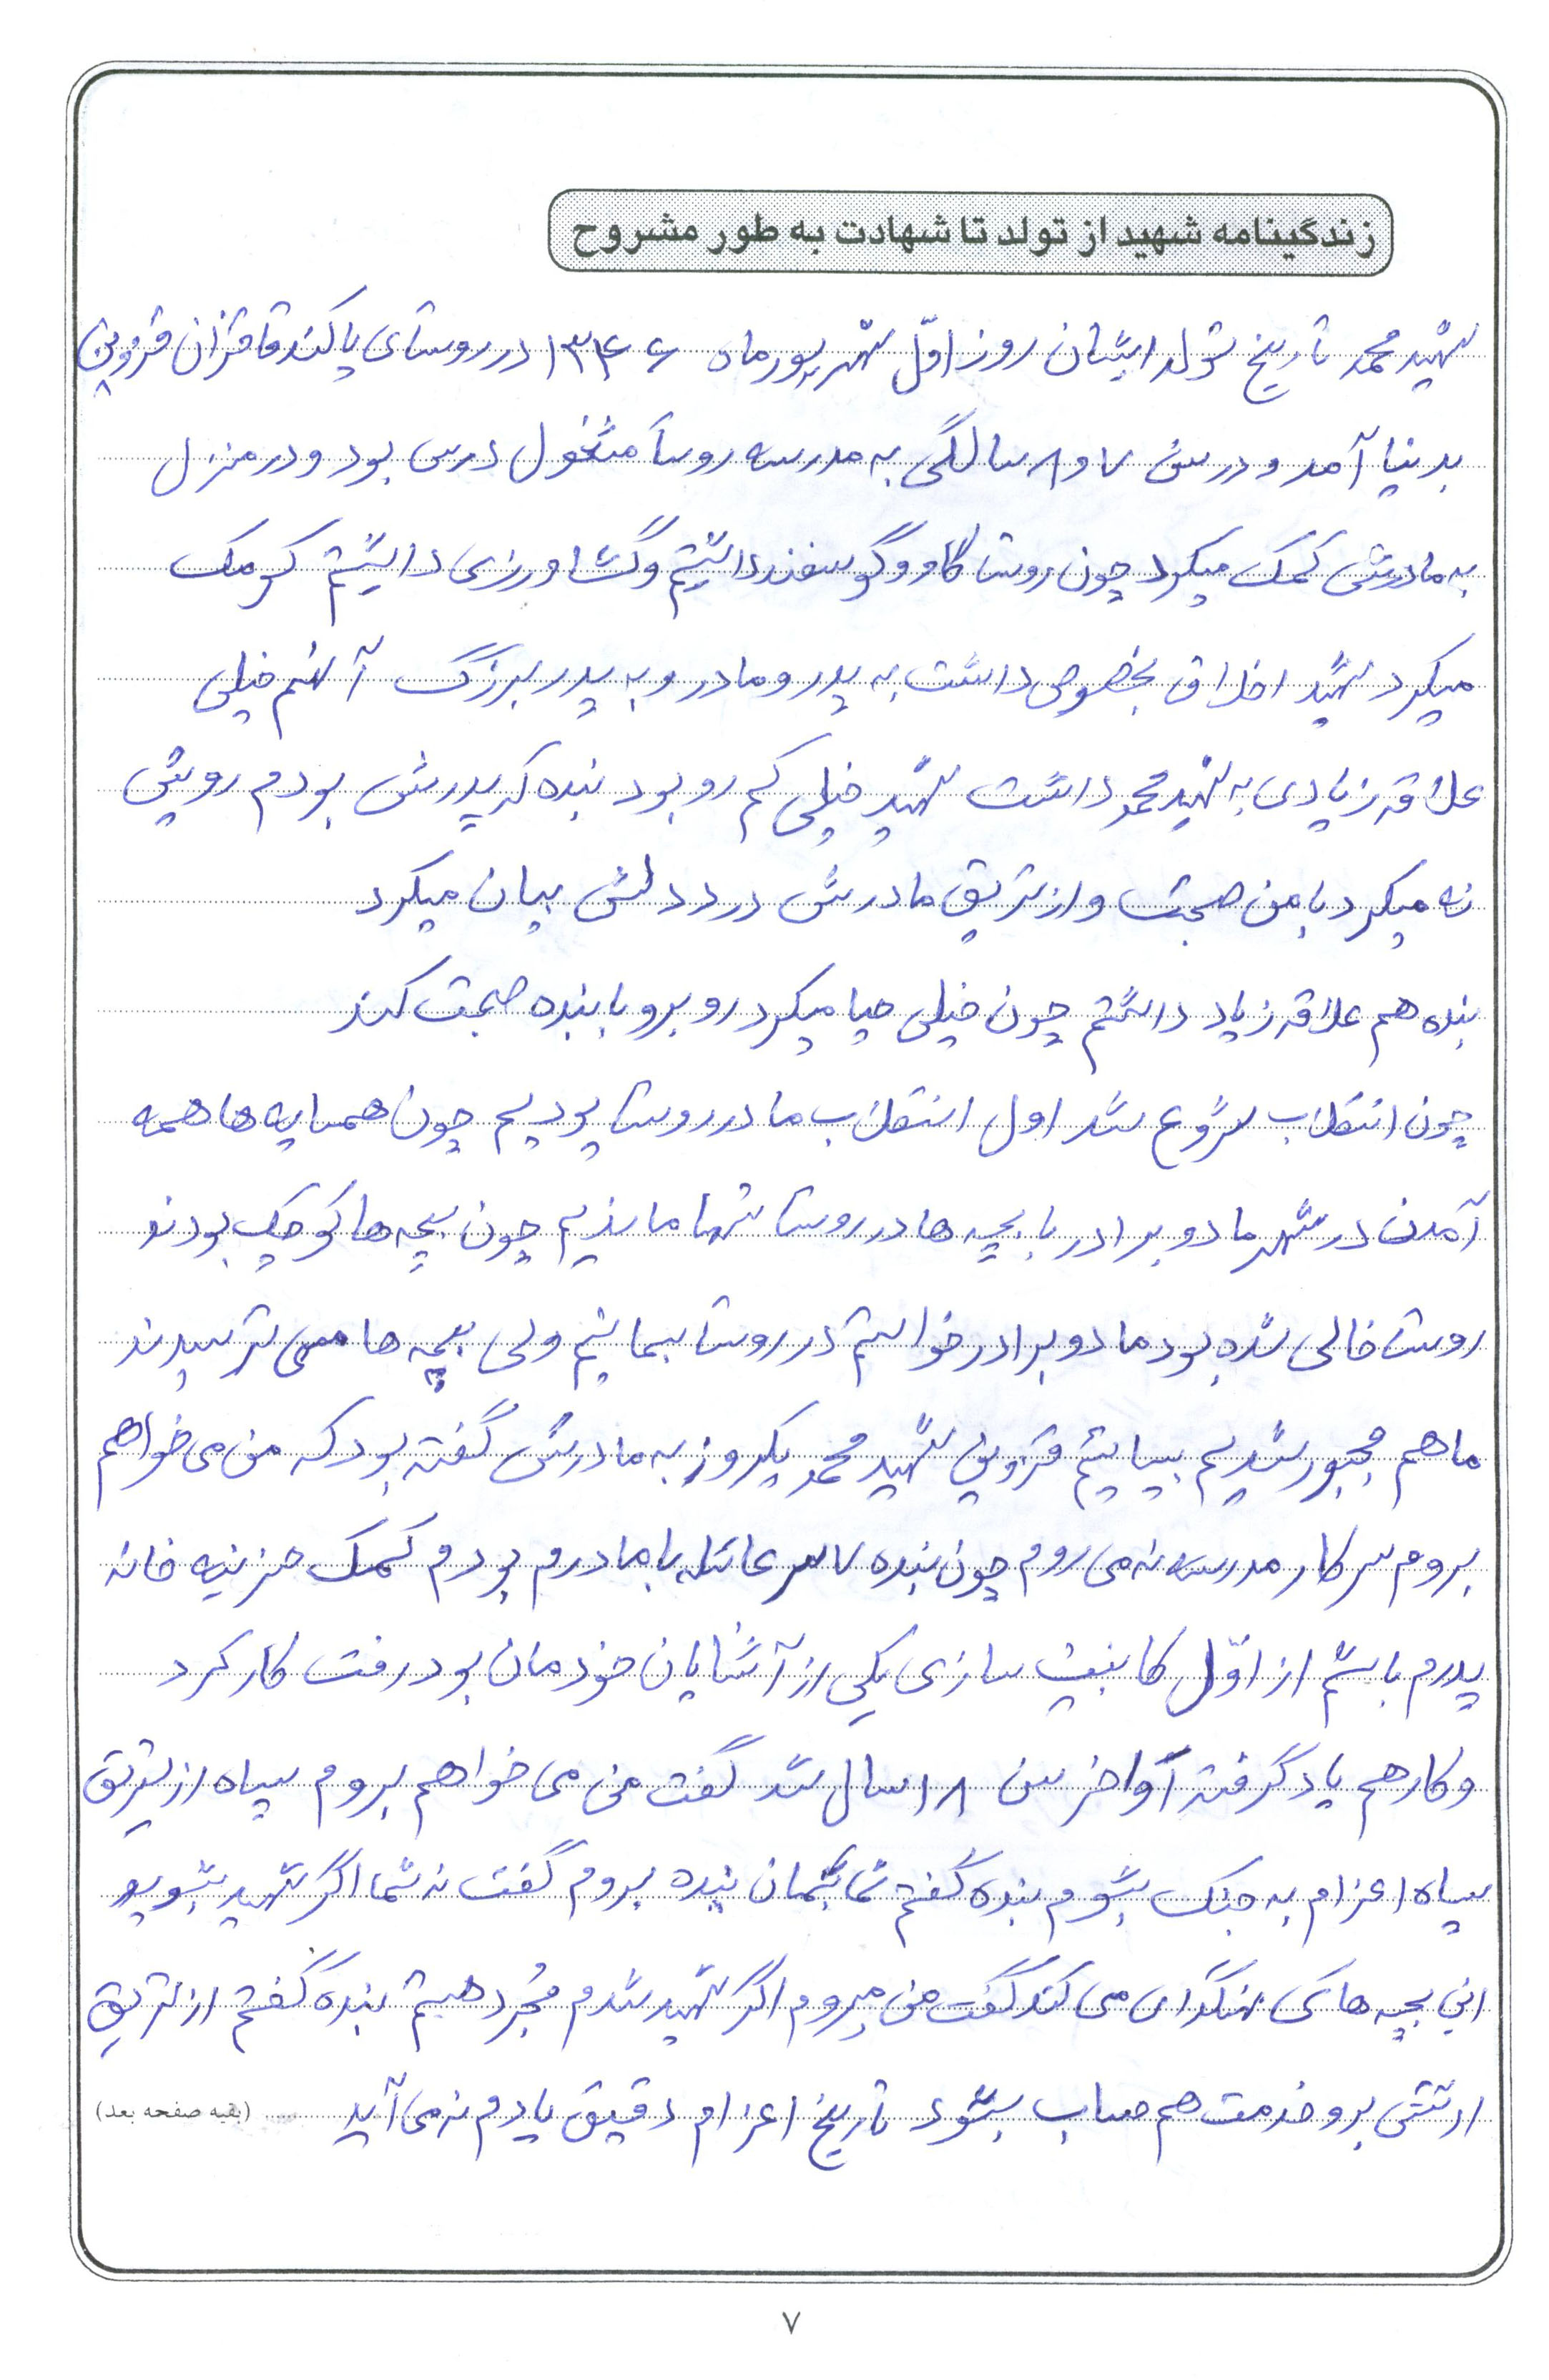 زندگینامه شهید از تولد تا شهادت به طور مشروح
شهید محمد تاریخ تولد ایشان روز اوّل شهریور ماه ۱۳۴۶ در روستای پاکند قاقزان قزوین
بدنیا آمد و در سن ۷ و ۸ سالگی به مدرسه روستا مشغول درس بود و در منزل
به مادرش کمک میکرد چون روستا گاو و گوسفند داشتیم و کشاورزی داشتیم کومک
میکرد شهید اخلاق بخصوصی داشت به پدر و مادر و به پدربزرگ آنهم خیلی
علاقه زیادی به شهید محمد داشت شهید خیلی کم رو بود بنده که پدرش بودم رویش
نه میکرد با من صحبت و از تریق مادرش درد دلش بیان میکرد
بنده هم علاقه زیاد داشتم چون خیلی حیا میکرد روبرو با بنده صحبت کند
چون انقلاب شروع شد اول انقلاب ما در روستا بودیم چون همسایه ها همه
آمدن در شهر ما دو برادر با بچه ها در روستا تنها ماندیم چون بچه ها کوچک بودند
روستا خالی شده بود ما دو برادر خواستم در روستا بمانیم ولی بچه ها می ترسیدند
ما هم مجبور شدیم بیاییم قزوین شهید محمد یکروز به مادرش گفته بود که من می خواهم
بروم سر کار مدرسه نه می روم چون بنده ۷ سر عائله با مادرم بودم کمک حزینه خانه
پدرم باشم از اوّل کابینت سازی یکی از آشنایان خودمان بود رفت کار کرد
و کار هم یاد گرفته آواخر سن ۱۸ سال شد گفت من می خواهم بروم سپاه از تریق
سپاه اعزام به جنگ بشوم بنده گفتم شما بمان بنده بروم گفت نه شما اگر شهید بشوید
این بچه های نگهداری می کند گفت من میروم اگر شهید شدم مجرد هستم بنده گفتم از تریق
ارتش برو خدمت هم حساب بشود تاریخ اعزام دقیق یادم نه می آید
(بقیه صفحه بعد)
۷